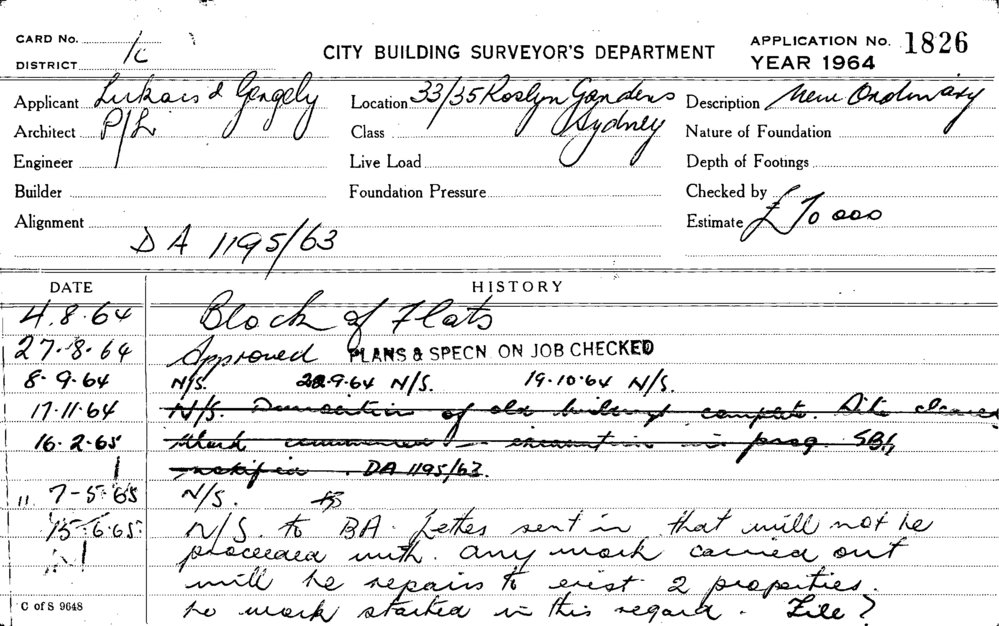 CARD No.
DISTRICT 1C
CITY BUILDING SURVEYOR'S DEPARTMENT
APPLICATION No. 1826
YEAR 1964
Applicant Lukacs & Gergely
Location 33/35 Roslyn Gardens
Description New Ordinary
Architect P/L
Class Sydney
Nature of Foundation
Engineer
Live Load
Depth of Footings
Builder
Foundation Pressure
Checked by
Alignment
Estimate £70 000
DA 1195/63
DATE HISTORY
4.8.64 Block of Flats
27.8.64 Approved PLANS & SPECN. ON JOB CHECKED
8.9.64 N/S. 22.9.64 N/S. 19.10.64 N/S.
17.11.64 N/S. Demolition of old buildings complete. Site cleared
16.2.65 Work commenced - excavation in prog. SBI,
notified. DA 1195/63.
11. 7-5-65 N/S.
15.6.65. N/S. to BA. Letter sent in that will not be
proceeded with. any work carried out
will be repairs to exist 2 properties.
no work started in this regard. File?
C of S 9648